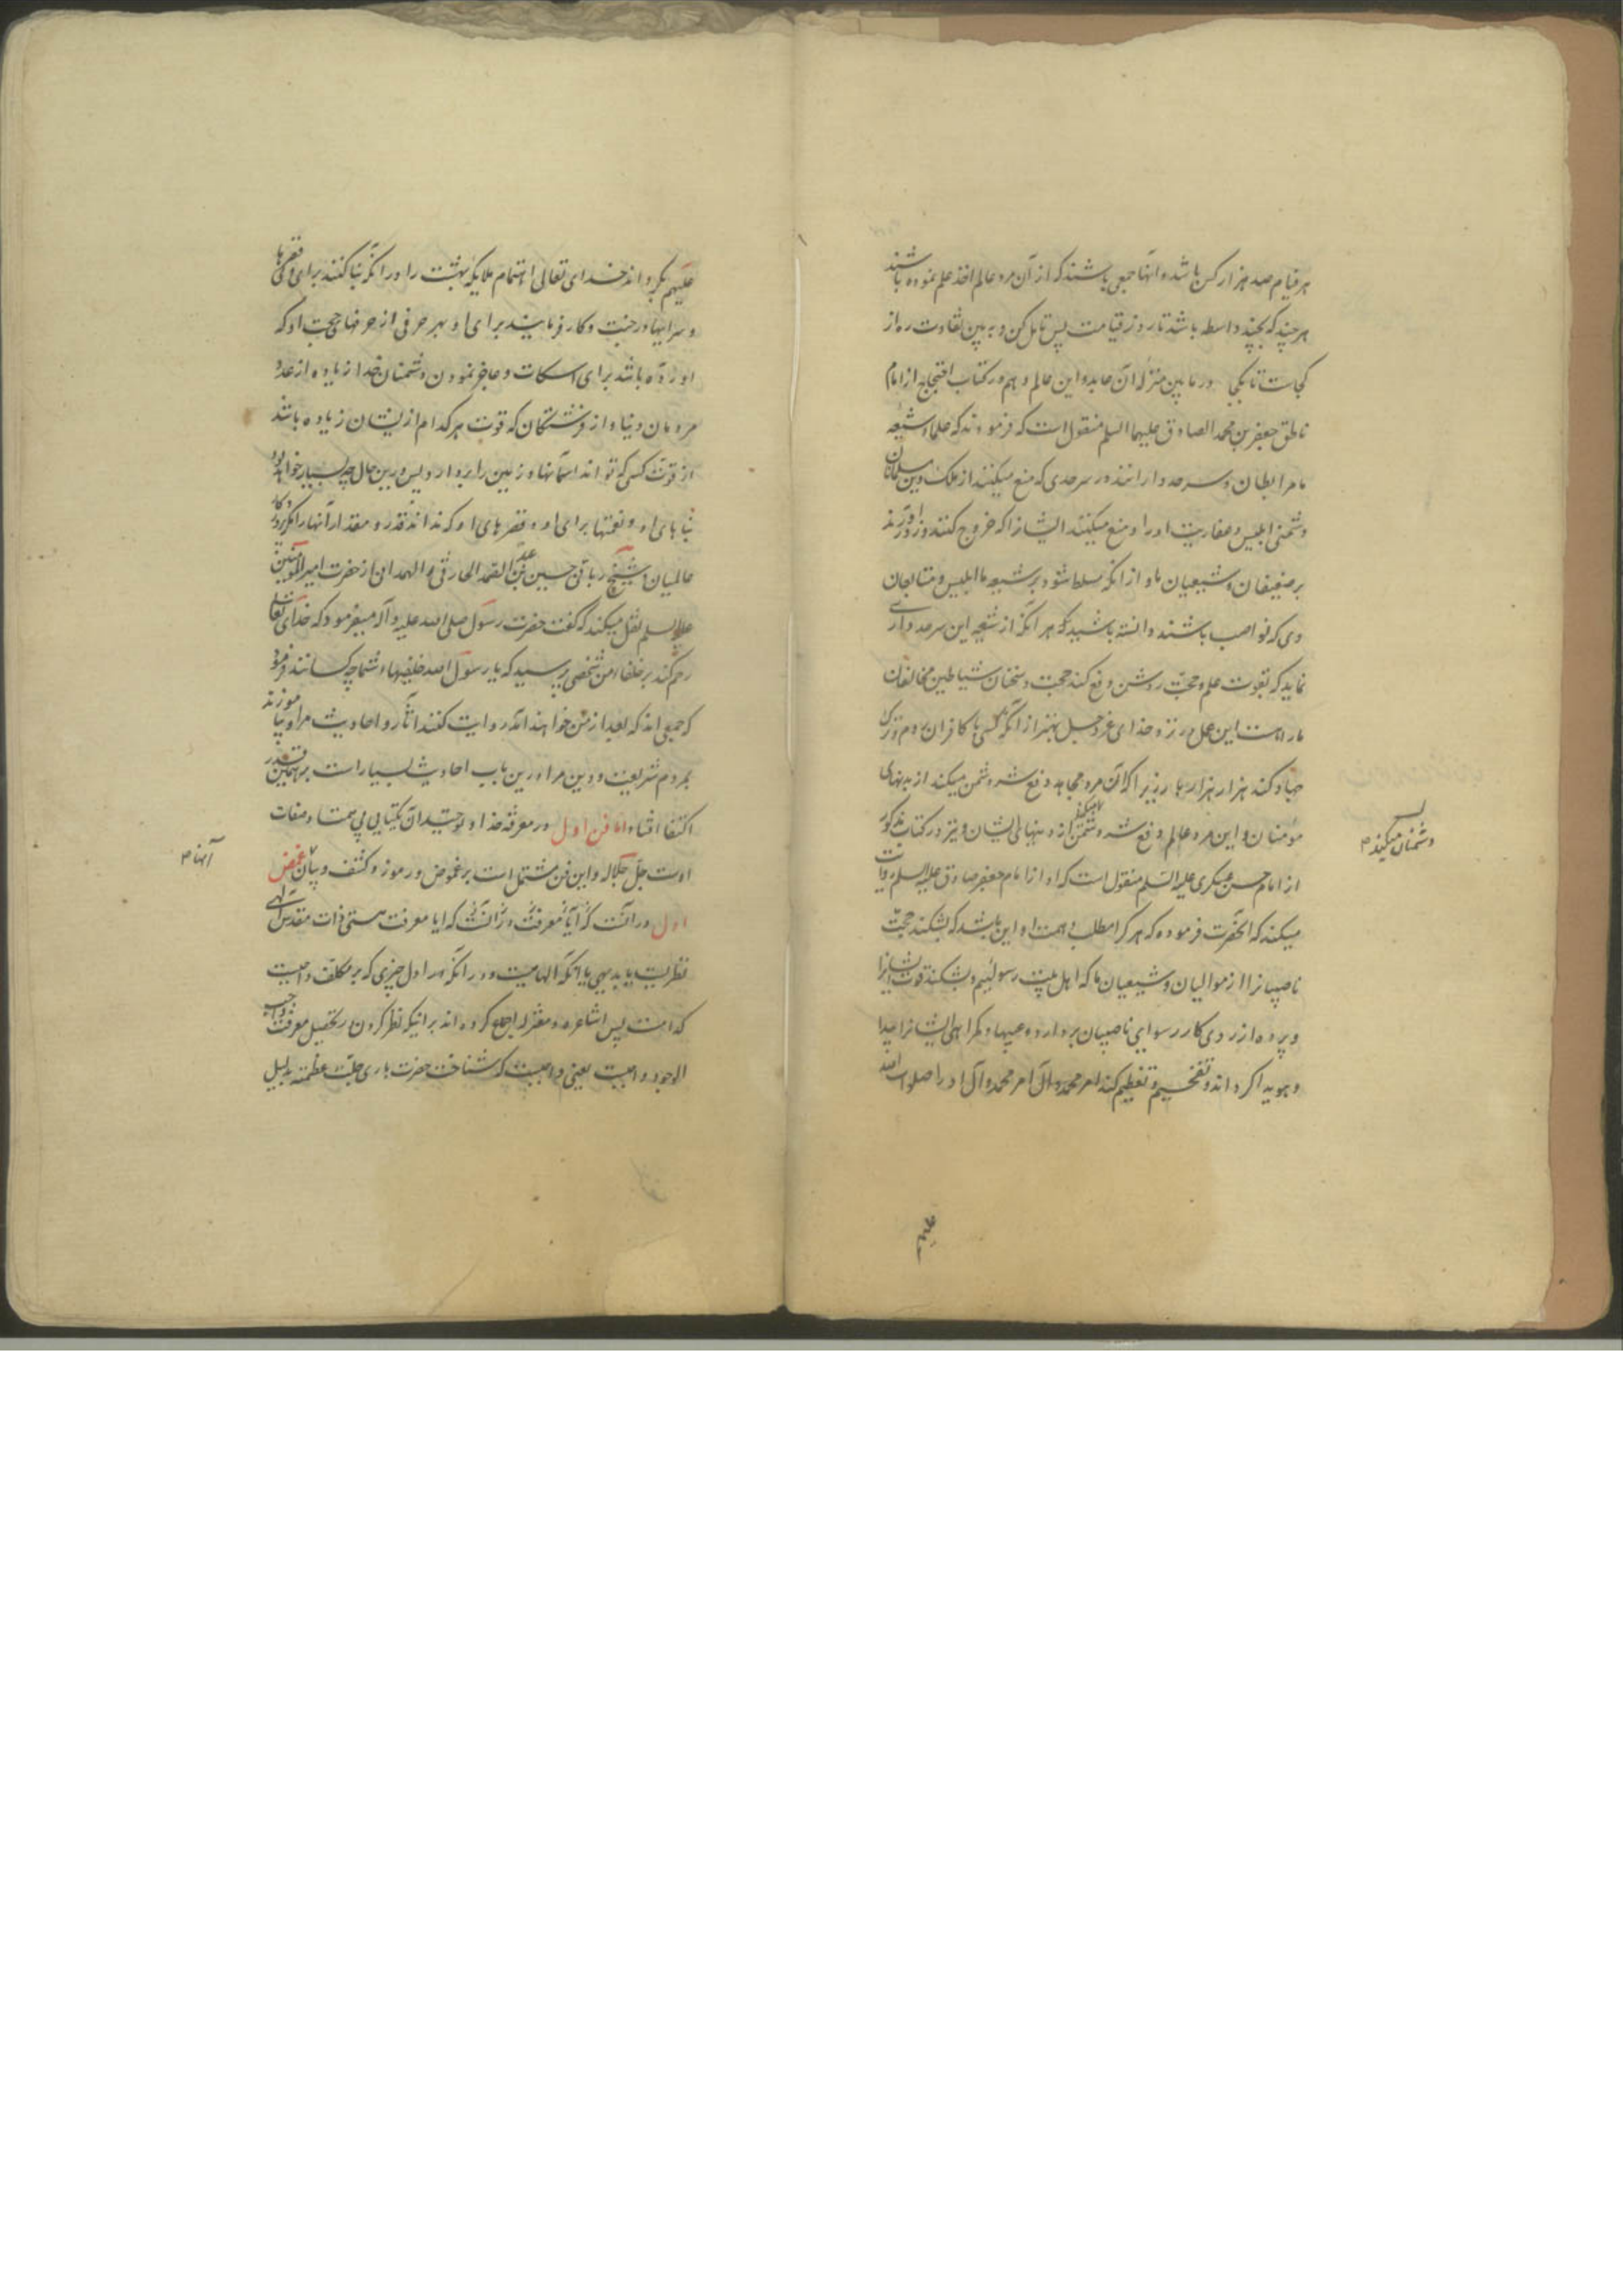 هر قیام صد هزار کس باشد و آنها جمعی باشند که از آن مرد عالم اخذ علم نموده باشند
هر چند که بچند واسطه باشد تا روز قیامت پس تامل کن و به بین تفاوت ره از
کجاست تا بکجا در مابین منزلهٔ آن عابد و این عالم و هم در کتاب احتجاج از امام
ناطق جعفر بن محمد الصادق علیهما السلم منقول است که فرمودند که علماء شیعهٔ
ما مرابطان و سرحد دارانند در سرحدی که منع میکنند از ملک و دین مسلمانان
دشمنی ابلیس و عفاریت او را و منع میکنند ایشانرا که خروج کنند و زور آورند
بر ضعیفان و شیعیان ما و از آنکه مسلط شود بر شیعه ما ابلیس و متابعان
وی که نواصب باشند دانسته باشید که هر آنکه از شیعه این سرحد داری
نماید که بقوت علم و حجت روشن دفع کند حجت و سخنان شیاطین مخالفان
ما را هست این عمل در نزد خدای عز و جل بهتر از آنکه کسی با کافران روم و ترک
جهاد کند هزار هزار بار زیرا که آن مرد مجاهد دفع شر دشمن میکند از بدنهای
مؤمنان و این مرد عالم دفع شر دشمن میکند از دینهای ایشان و نیز در کتاب مذکور
از امام حسن عسکری علیه السلم منقول است که او از امام جعفر صادق علیه السلم روایت
میکند که آنحضرت فرموده که هر کرا مطلب و همت او این باشد که بشکند حجت
ناصبیانرا از موالیان و شیعیان ما که اهل بیت رسولیم و بشکند قوت ایشانرا
و پرده از روی کار رسوایی ناصبیان بردارد و عیبها و گمراهی ایشانرا پیدا
و هویدا گرداند و تفخیم و تعظیم کند امر محمد و آل او را صلوات الله
دشمنان میکند
علیهم بگرداند خدای تعالی اهتمام ملایکهٔ بهشت را در آنکه بنا کنند برای وی قصرها
و سرایها در جنت و کار فرمایند برای او بهر حرفی از حرفهای حجت او که
آورده باشد برای اسکات و عاجز نمودن دشمنان خدا زیاده از عدد
مردمان دنیا و از فرشتگان که قوت هر کدام از ایشان زیاده باشد
از قوت کسی که تواند آسمانها و زمین را بردارد پس درین حال چه بسیار خواهد بود
بناهای او و نعمتها برای او و قصرهای او که نداند قدر و مقدار آنها را مگر پروردگار
عالمیان و شیخ ربانی حسین بن عبد الصمد الحارثی الهمدانی از حضرت امیر المؤمنین
علیه السلم نقل میکند که گفت حضرت رسول صلی الله علیه و آله میفرمود که خدای تعالی
رحم کند بر خلفاء من شخصی پرسید که یا رسول الله خلیفهاء شما چه کسانند فرمود
که جمعی اند که بعد از من خواهند آمد روایت کنند آثار و احادیث مرا و بیاموزند
بمردم شریعت و دین مرا و درین باب احادیث بسیار است بر همین قدر
اکتفا افتاد اما فن اول در معرفة خدا و توحید آن یکتایی بی همتا و صفات
اوست جل جلاله و این فن مشتمل است بر غموض و رموز و کشف و بیان غمض
اول در آنست که آیا معرفت در آنست که آیا معرفت هستی ذات مقدس الهی
نظریست یا بدیهی یا آنکه الهامیست و در آنکه اول چیزی که بر مکلف واجبست
کدامست پس اشاعره و معتزله اجماع کرده اند بر اینکه نظر کردن در تحصیل معرفت واجب
الوجود واجبست یعنی واجبست که شناخت حضرت باری جلت عظمته بدلیل
آنها